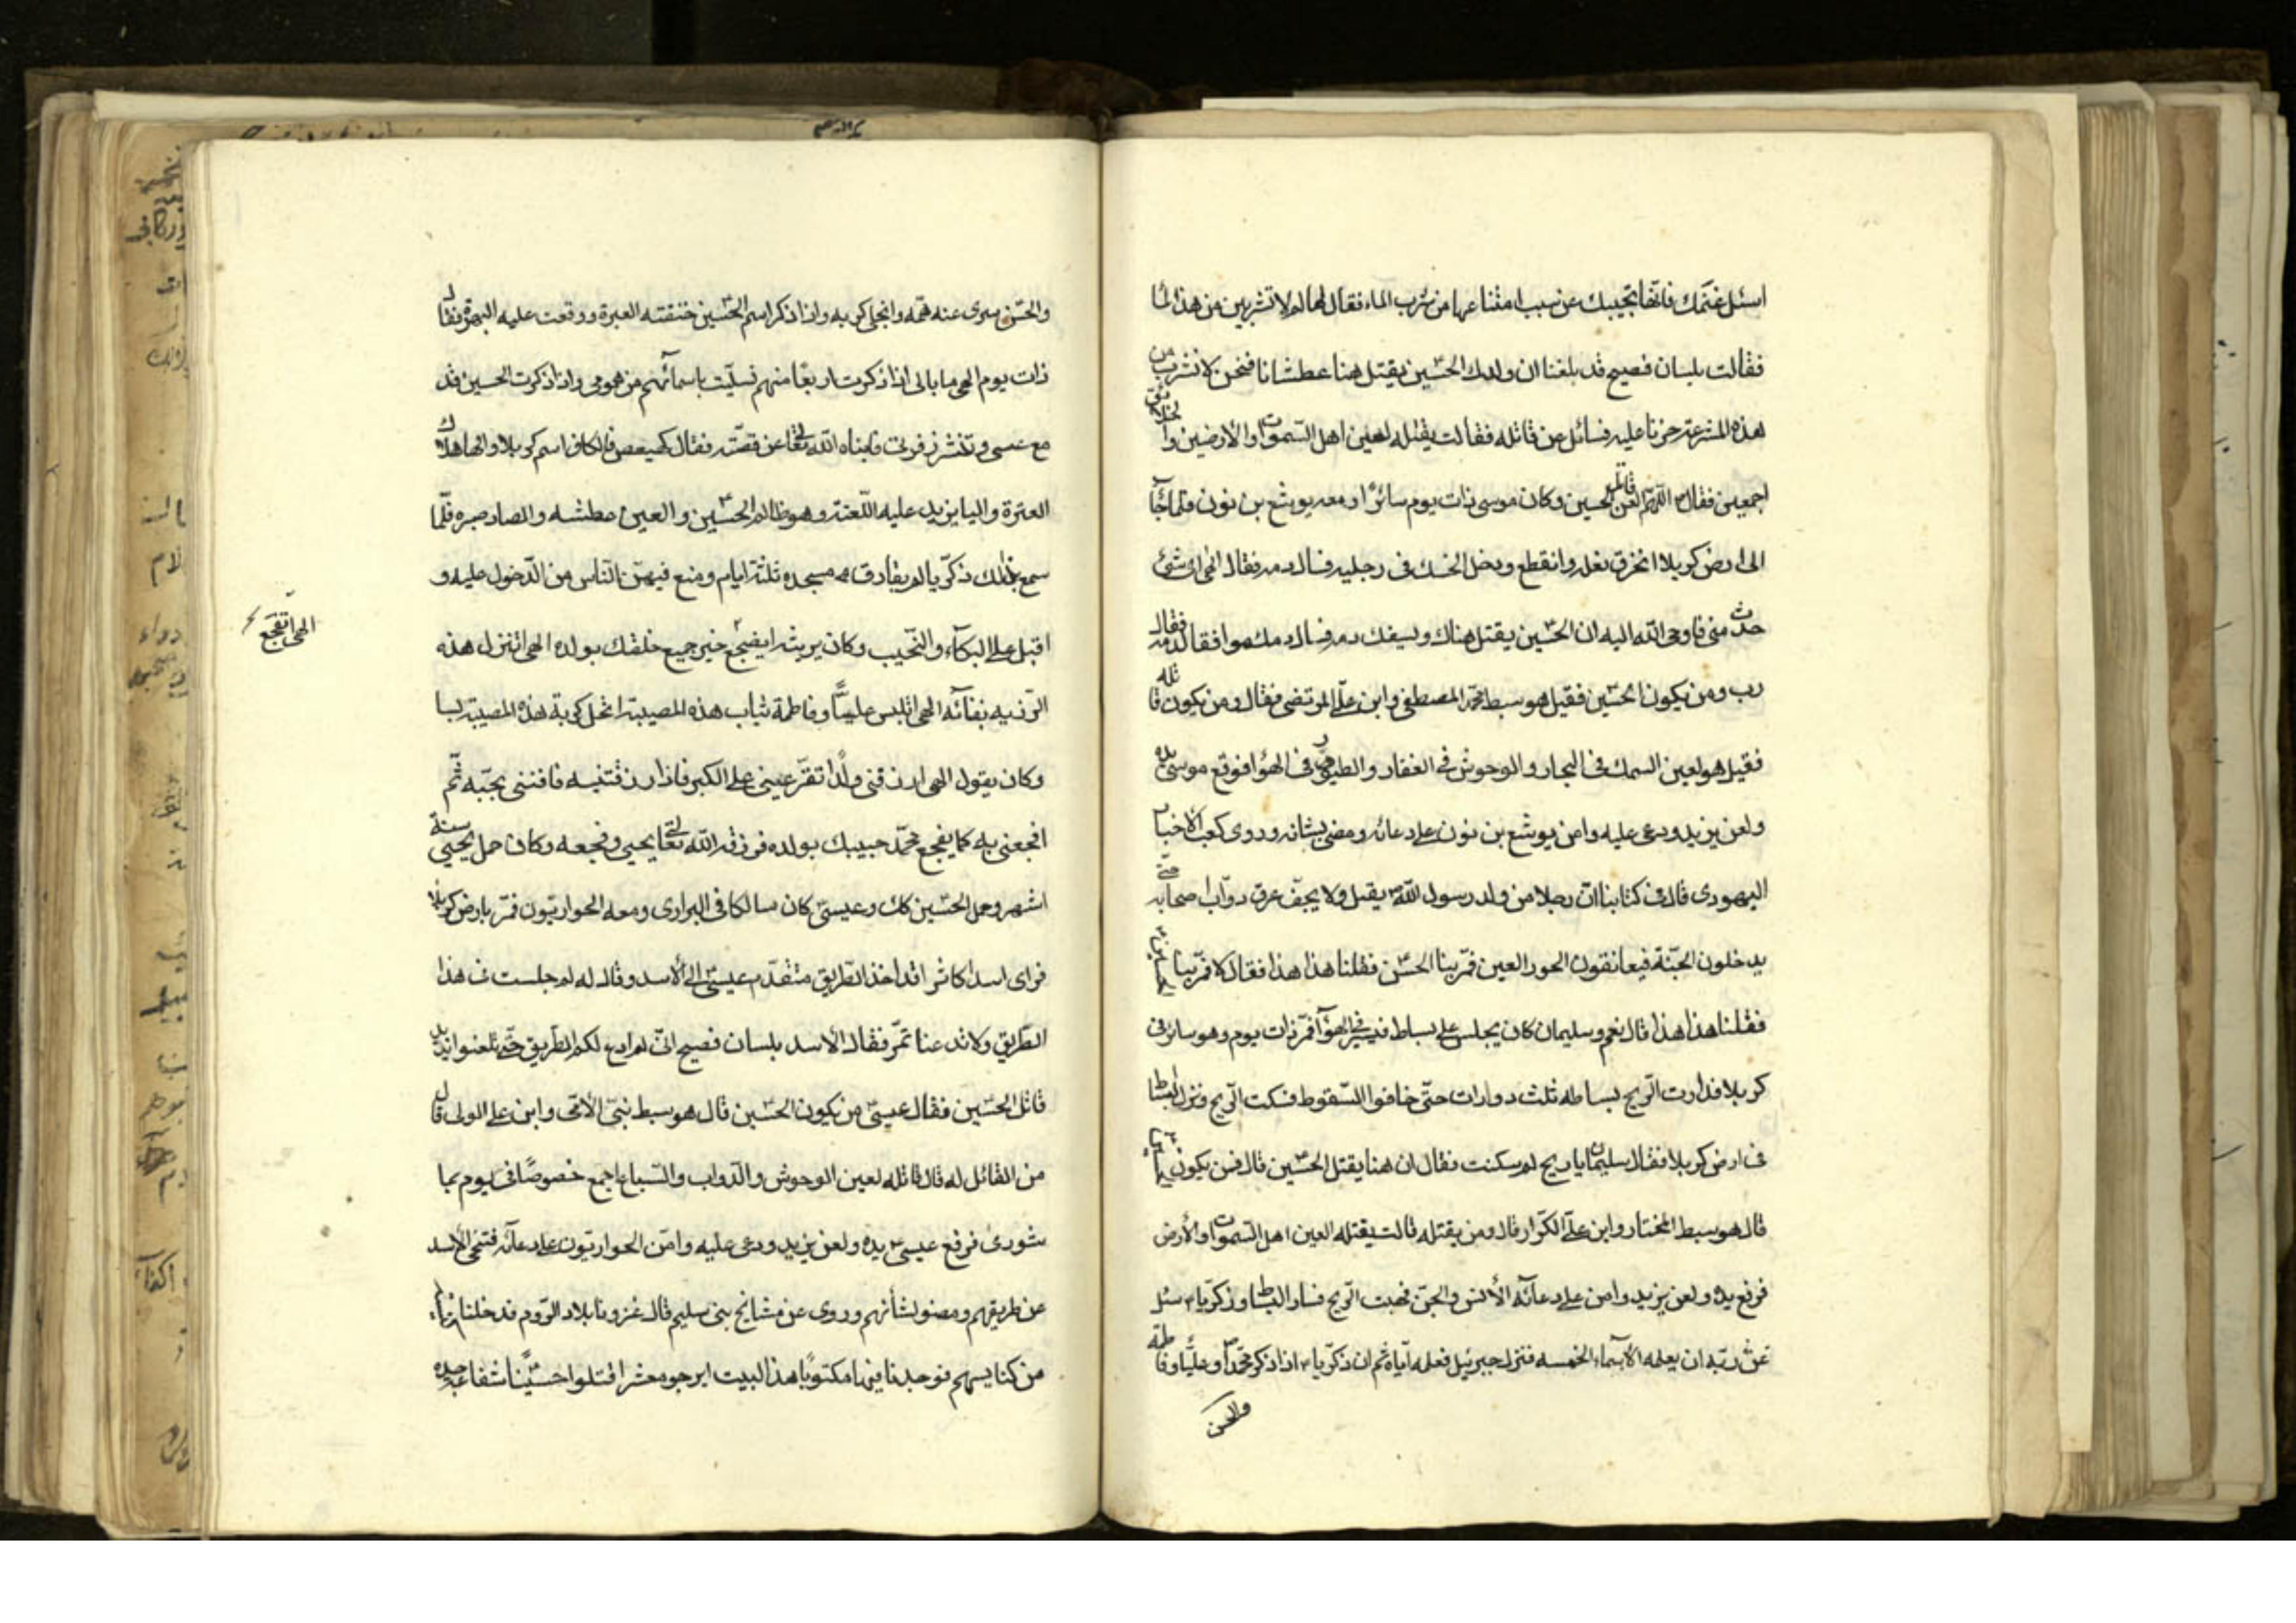 اسئل غنمك فانها تجيبك عن سبب امتناعها من شرب الماء فقال لها لم لا تشربين من هذا الما
فقالت بلسان فصيح قد بلغنا ان ولدك الحسين يقتل هنا عطشانا فنحن لا نشرب من
هذه المشرعة حزنا عليه فسائل عن قاتله فقالت يقتله لعين اهل السموات والارضين والخلائق
اجمعين فقال اللهم العن قاتل الحسين وكان موسى ذات يوم سائرا ومعه يوشع بن نون فلما جاء
الى ارض كربلا انخرق نعله وانقطع ودخل الخسك فى رجليه فسال دمه فقال الهى اى شئ
حدث منى فاوحى الله اليه ان الحسين يقتل هناك ويسفك دمه فسال دمك موافقا لدمه فقال
رب ومن يكون الحسين فقيل هو سبط محمد المصطفى وابن على المرتضى فقال ومن يكون قاتله
فقيل هو لعين السمك فى البحار والوحوش فى القفار والطيور فى الهوا فرفع موسى يده
ولعن يزيد ودعى عليه وامن يوشع بن نون على دعائه ومضى بشانه وروى كعب الاخبار
اليهودى قال فى كتابنا ان رجلا من ولد رسول الله يقتل ولا يجف عرق دواب اصحابه حتى
يدخلون الجنة فيعانقون الحور العين فمر بنا الحسن فقلنا هذا هذا فقال لا فمر بنا الحسين
فقلنا هذا هذا قال نعم وسليمان كان يجلس على بساط فيسير فى الهوآ فمر ذات يوم وهو سائر فى
كربلا فدارت الريح بساطه ثلث دوارات حتى خافوا السقوط فسكت الريح ونزل البساط
فى ارض كربلا فقال سليمان يا ريح لم سكنت فقال ان هنا يقتل الحسين قال فمن يكون الحسين
قال هو سبط المختار وابن على الكرار قال ومن يقتله قالت يقتله لعين اهل السموات والارض
فرفع يده ولعن يزيد وامن على دعائه الانس والجن فهبت الريح فسار البساط وزكريا سئل
عن ربه ان يعلمه الاسماء الخمسه فنزل جبرئيل فعلمه اياه ثم ان زكريا اذا ذكر محمدا وعليا وفاطمة
والحسن
والحسن سرى عنه همه وانجلى كربه واذا ذكر اسم الحسين خنقته العبرة ووقعت عليه البهرة فقال
ذات يوم الهى ما بالى اذا ذكرت اربعا منهم تسليت باسمائهم من همومى واذا ذكرت الحسين تد
مع عينى وتنشر زفرتى فانباه الله تعالى عن قصته فقال كهيعص فالكاف اسم كربلا والها هلاك
العترة واليا يزيد عليه اللعنة وهو ظالم الحسين والعين عطشه والصاد صبره فلما
سمع بذلك زكريا لم يفارق مسجده ثلثة ايام ومنع فيهن الناس من الدخول عليه و
اقبل على البكاء والنحيب وكان يرثيه اتفجع خير جميع خلقك بولده الهى اتنزل هذه
الهى اتفجع
الرزيه بفنائه الهى اتلبس عليا وفاطمة ثياب هذه المصيبة اتحل كربة هذه المصيبة بسا
وكان يقول الهى ارزقنى ولدا تقر عينى على الكبر فاذا رزقتنيه فافتنى بحبه ثم
افجعنى به كما تفجع محمد حبيبك بولده فرزقه الله تعالى يحيى وفجعه وكان حمل يحيى ستة
اشهر وحمل الحسين كك وعيسى كان سالكا فى البرارى ومعه الحواريون فمر بارض كربلا
فراى اسدا كاشرا قد اخذ الطريق فتقدم عيسى الى الاسد وقال له لم جلست فى هذا
الطريق ولا تدعنا نمر فقال الاسد بلسان فصيح انى لم ادع لكم الطريق حتى تلعنوا يزيد
قاتل الحسين فقال عيسى من يكون الحسين قال هو سبط نبى الامى وابن على الولى قال
من القاتل له قال قاتله لعين الوحوش والدواب والسباع اجمع خصوصا فى يوم عا
شورى فرفع عيسى يده ولعن يزيد ودعى عليه وامن الحواريون على دعائه فتنحى الاسد
عن طريقهم ومضو لشأنهم وروى عن مشايخ بنى سليم قال غزونا بلاد الروم فدخلنا
من كنايسهم فوجدنا فيها مكتوبا هذا البيت ايرجو معشر اقتلوا حسينا شفاعة جده